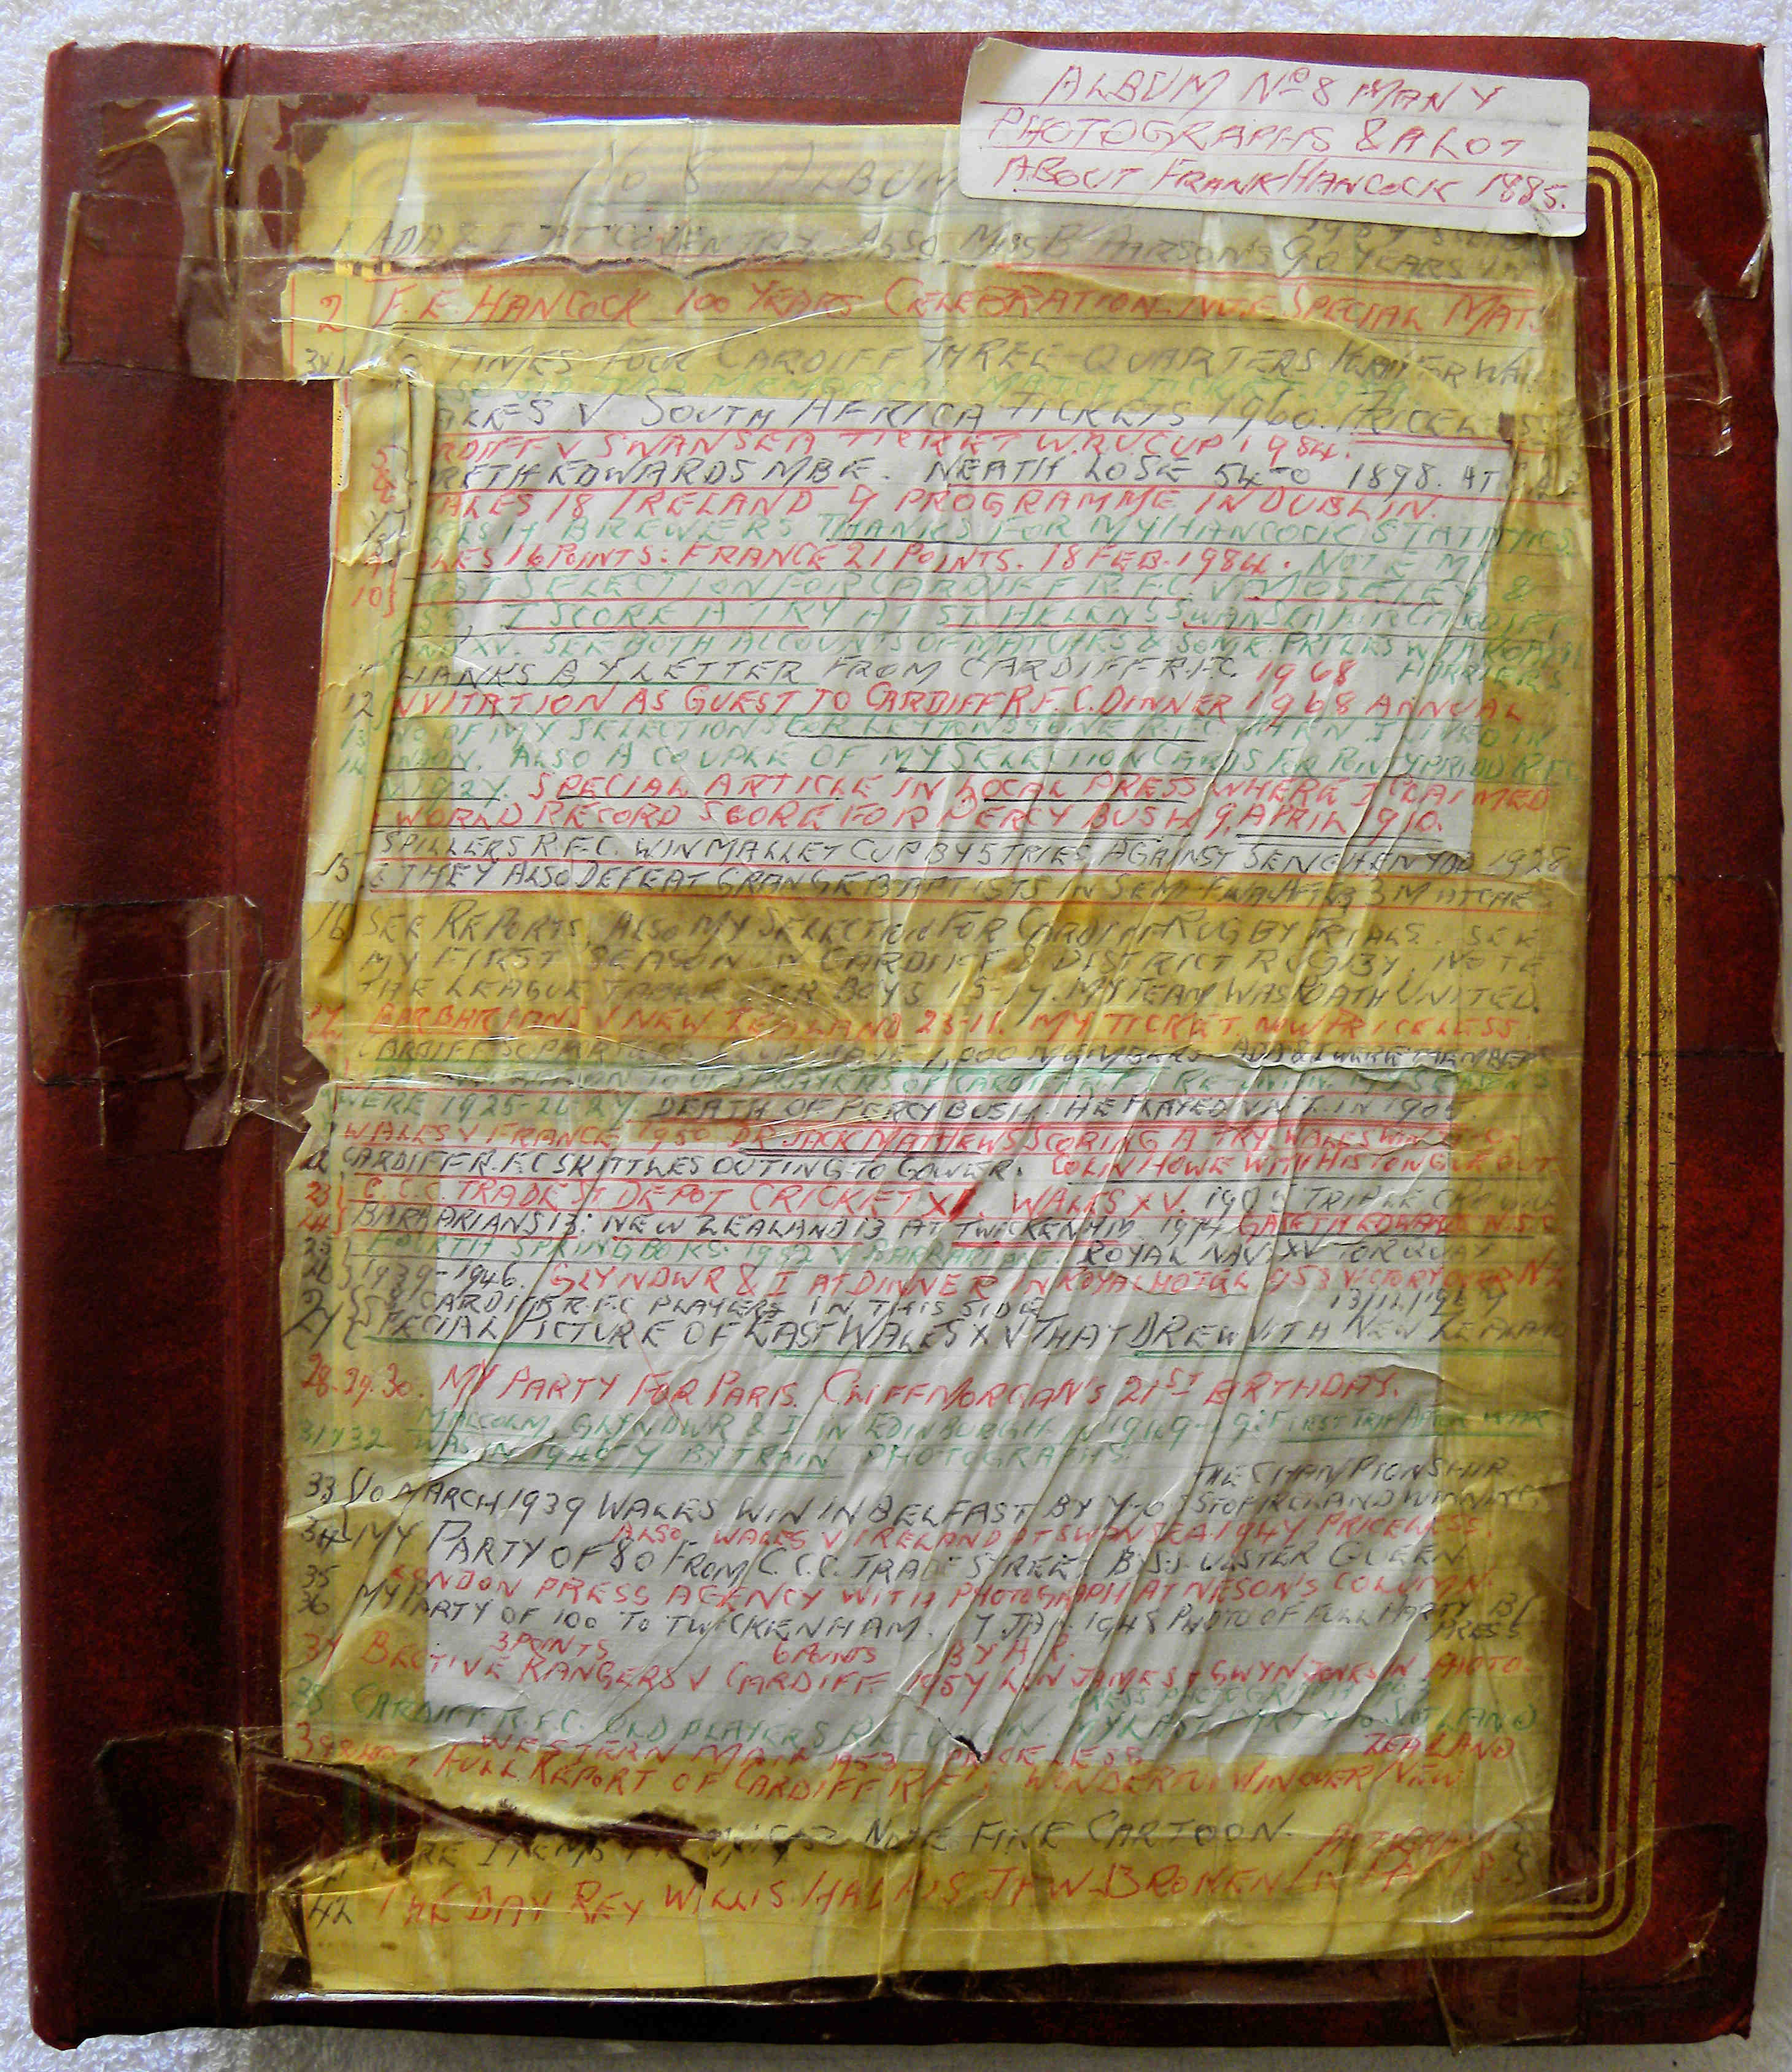 ALBUM No 8 MANY
PHOTOGRAPHS & A LOT
ABOUT FRANK HANCOCK 1885.
No 8 ALBUM
1 ADA & I AT COVENTRY. ALSO MISS B PARSON'S 90 YEARS
2 F. E. HANCOCK 100 YEARS CELEBRATION. NOTE SPECIAL MAT
TIMES FOUR CARDIFF THREE QUARTERS
MEMORIAL MATCH TICKET
ALES V SOUTH AFRICA TICKETS 1960. PRICEL
5 RDIFF V SWANSEA TICKET W.R.U. CUP 1984.
RETH EDWARDS MBE. NEATH LOSE 54-0 1898. AT
ALES 18 IRELAND 9 PROGRAMME IN DUBLIN.
ELSH BREWERS THANKS FOR MY HANCOCK STATITICS.
9 LES 16 POINTS: FRANCE 21 POINTS. 18 FEB. 1984. NOTE MY
10 RST SELECTION FOR CARDIFF R.F.C. V MOSELEY &
LSO, I SCORE A TRY AT ST. HELENS SWANSEA FOR CARDIFF
2ND XV. SEE BOTH ACCOUNTS OF MATCHES & SOME PRILES WITH ROATH
HANKS A Y. LETTER FROM CARDIFF R.F.C. 1968 HARRIERS.
12 NVITATION AS GUEST TO CARDIFF R.F.C. DINNER 1968 ANNUAL
13 WO OF MY SELECTIONS FOR LEYTONSTONE R.F.C WHEN I LIVED IN
14 ONDON. ALSO A COUPLE OF MY SELECTION CARDS FOR PONTYPRIDD R.F.C.
N 1927. SPECIAL ARTICLE IN LOCAL PRESS WHERE I CLAIMED
WORLD RECORD SCORE FOR PERCY BUSH 9, APRIL 1910.
SPILLERS R.F.C. WIN MALLET CUP BY 5 TRIES AGAINST SENGHENYDD 1928
15 & THEY ALSO DEFEAT GRANGE BAPTISTS IN SEMI-FINAL AFTER 3 MATCHES
16 SEE REPORTS, ALSO MY SELECTION FOR CARDIFF RUGBY TRIALS. SEE
MY FIRST SEASON IN CARDIFF & DISTRICT RUGBY. NOTE
THE LEAGUE TABLE FOR BOYS 15-17. MY TEAM WAS ROATH UNITED.
BARBARIANS V NEW ZEALAND 23-11. MY TICKET NOW PRICELESS
CARDIFF SUPPORTERS CLUB HAVE 1,000 MEMBERS ADA & I WERE MEMBERS
TO OLD PLAYERS OF CARDIFF R.F.C. RE-UNION. MY SEASONS
WERE 1925-26 27. DEATH OF PERCY BUSH. HE PLAYED V N.Z. IN 1905.
WALES V FRANCE 1950 DR JACK MATHEWS SCORING A TRY WALES WIN
22 CARDIFF R.F.C SKITTLES OUTING TO GOWER. COLIN HOWE WITH HIS TONGUE OUT
23 C.C.C. TRADE ST DEPOT CRICKET XI. WALES XV. 1909 TRIPLE CROWN
24 BARBARIANS 13: NEW ZEALAND 13 AT TWICKENHAM. 1974 GARETH EDWARDS
25 FOURTH SPRINGBOKS 1952 V BARBARIANS. ROYAL NAV. XV TORQUAY
26 1939-1946. GLYNDWR & I AT DINNER IN ROYAL HOTEL 1953 VICTORY OVER N.Z
5 CARDIFF R.F.C PLAYERS IN THIS SIDE 13/12/1967
27 SPECIAL PICTURE OF EAST WALES XV THAT DREW WITH NEW ZEALAND
28. 29. 30. MY PARTY FOR PARIS. CLIFF MORGAN'S 21ST BIRTHDAY.
MALCOLM, GLYNDWR & I IN EDINBURGH IN 1949 FIRST TRIP AFTER WAR
31 & 32 WAS IN 1947 BY TRAIN PHOTOGRAPHS
THE CHAMPIONSHIP
33 10 MARCH 1939 WALES WIN IN BELFAST BY 7-0 STOP IRELAND WINNING
ALSO, WALES V IRELAND AT SWANSEA 1947 PRICELESS.
34 MY PARTY OF 80 FROM C.C.C. TRADE STREET BY S.S. ULSTER QUEEN
35 LONDON PRESS AGENCY WITH PHOTOGRAPH AT NESON'S COLUMN.
36 MY PARTY OF 100 TO TWICKENHAM. 7 JAN. 1948 PHOTO OF FULL PARTY BY
PRESS
3 POINTS 6 POINTS BY A R.
37 BECTIVE RANGERS V CARDIFF 1957 LIN JAMES & GWYN JONES IN PHOTO.
PRESS PHOTOGRAPH
38 CARDIFF R.F.C. OLD PLAYERS RETURN IN. MY LAST PARTY TO SCOTLAND
WESTERN MAIL 1953 PRICELESS ZEALAND
39 FULL REPORT OF CARDIFF R.F.C'S WONDERFUL WIN OVER NEW
MORE ITEMS NOTE FINE CARTOON.
42 THE DAY REX WILLIS HAD HIS JAW BROKEN IN PARIS.